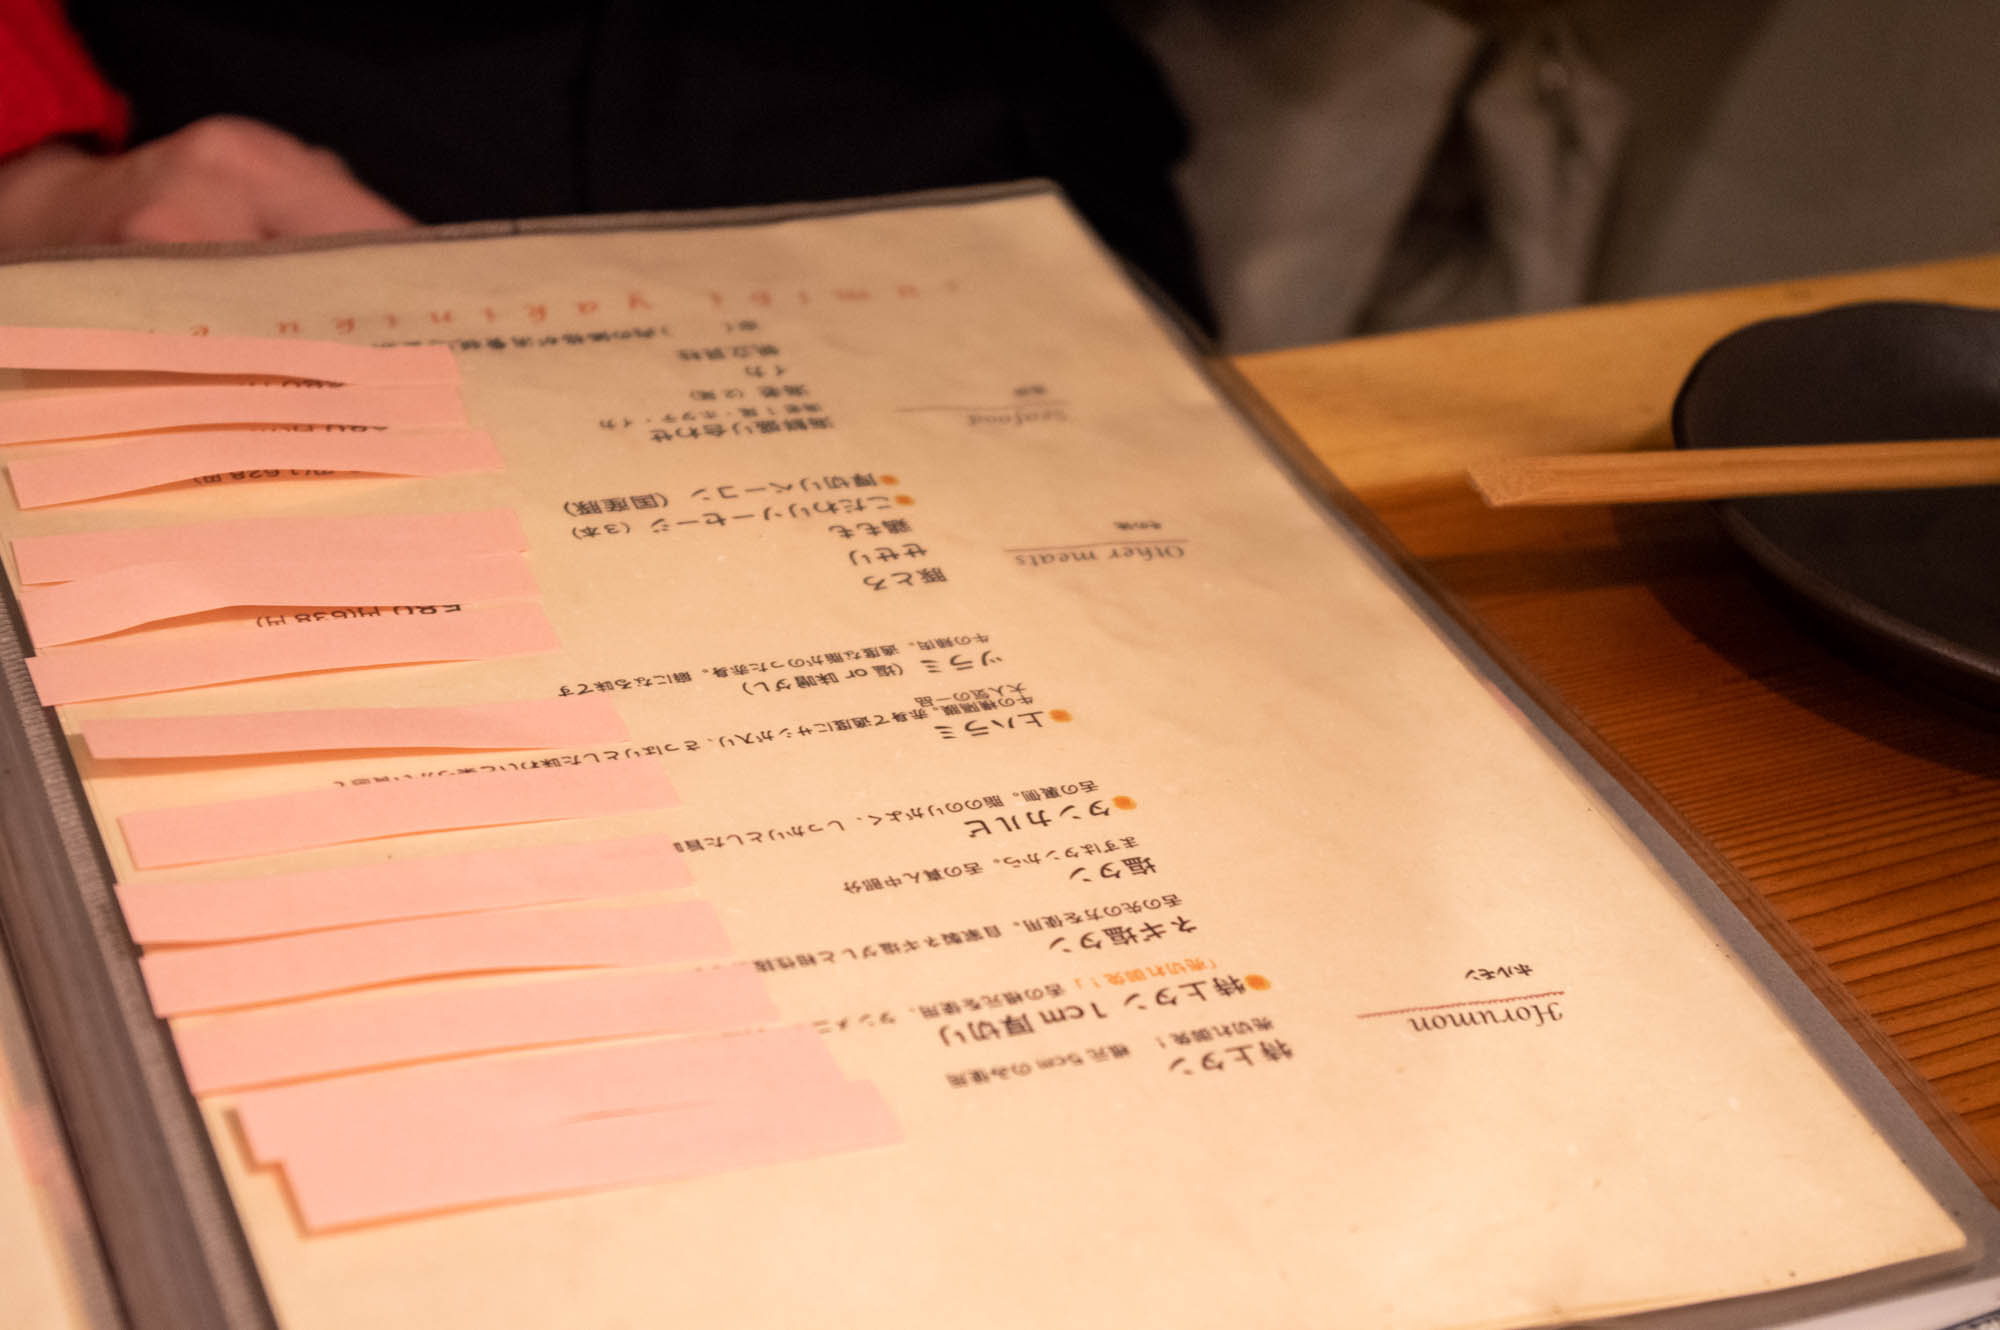 Horumon
ホルモン
特上タン
売切れ御免！ 根元5cmのみ使用
特上タン1cm厚切り
「売切れ御免！」舌の根元を使用、タンメニ
ネギ塩タン
舌の先の方を使用。自家製ネギ塩ダレと相性抜
塩タン
まずはタンから。舌の真ん中部分
タンカルビ
舌の裏側。脂ののりがよく、しっかりとした旨味
上ハラミ
牛の横隔膜。赤身で適度にサシが入り、さっぱりとした味わいと
大人気の一品
ツラミ（塩 or 味噌ダレ）
牛の頬肉。適度な脂がのった赤身。癖になる味です
Other meats
その他
豚とろ
せせり
580円(638円)
鶏もも
こだわりソーセージ（3本）
厚切りベーコン（国産豚）
(1,628円)
Seafood
海鮮
海鮮盛り合わせ
海老1尾・ホタテ・イカ
海老（2尾）
イカ
帆立貝柱
)内の価格が消費税
sumibi yakiniku